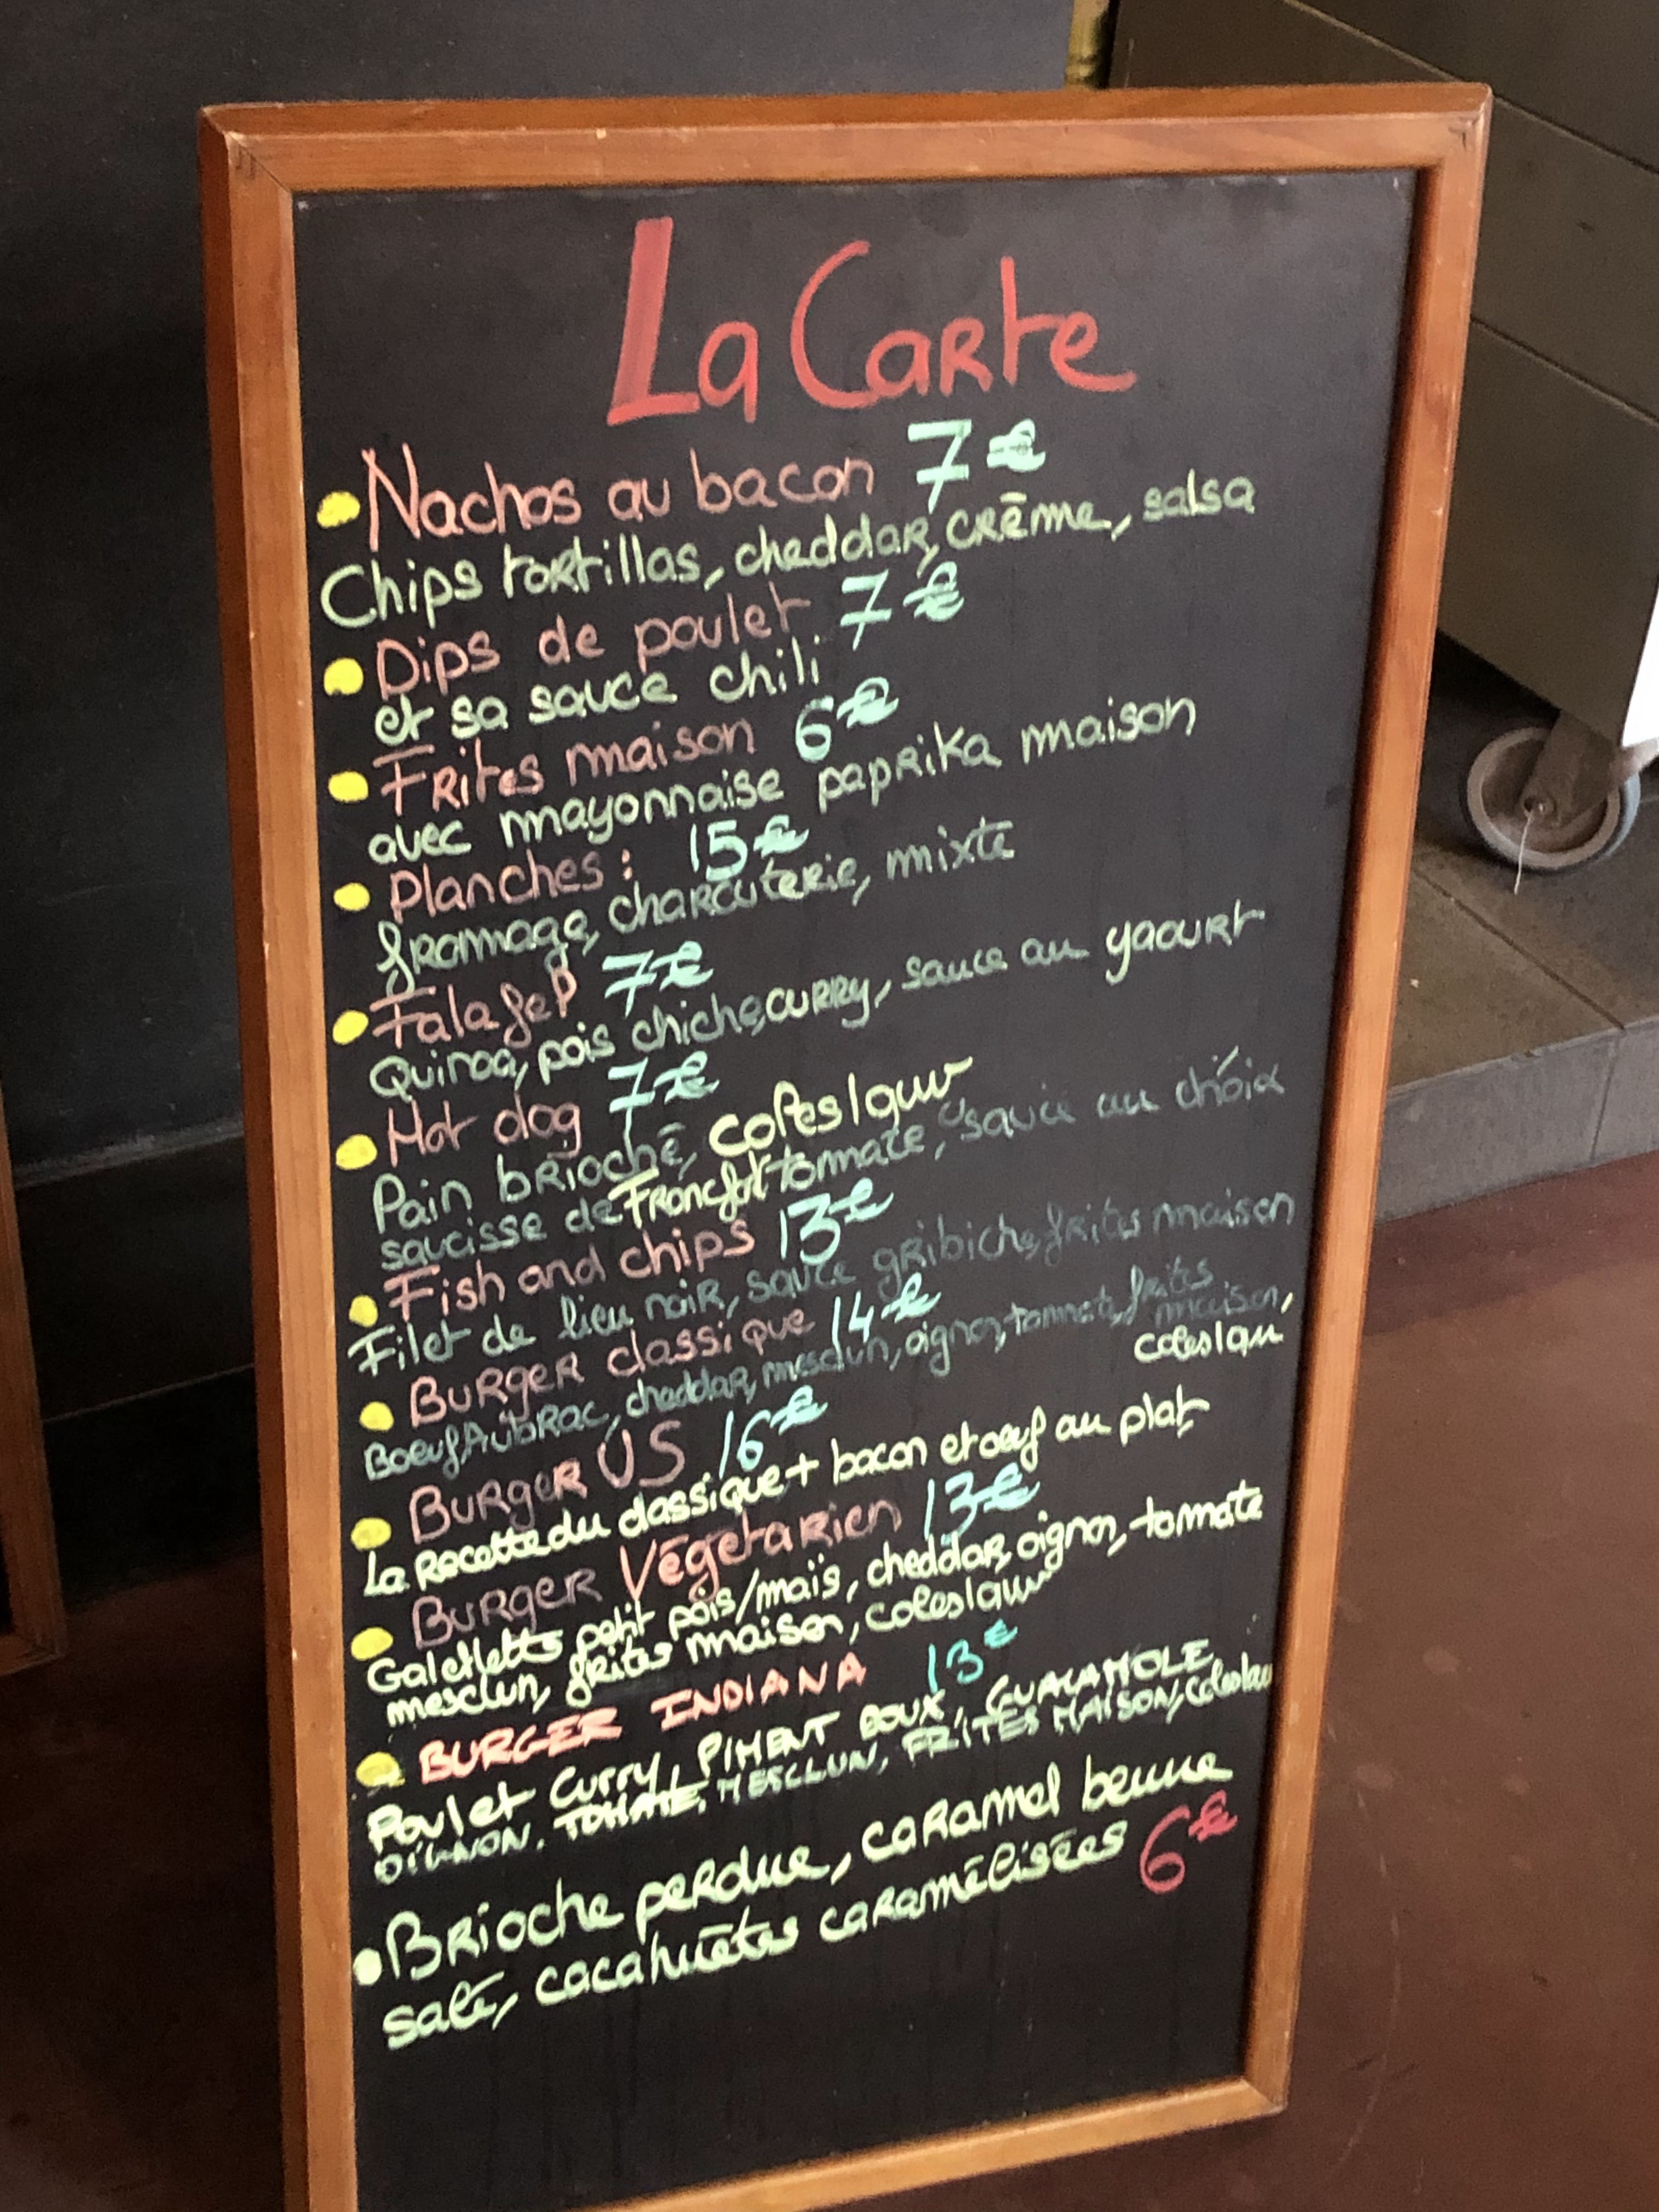 La Carte
Nachos au bacon 7€
Chips tortillas, cheddar, crème, salsa
Dips de poulet 7€
et sa sauce chili
Frites maison 6€
avec mayonnaise paprika maison
Planches : 15€
fromage, charcuterie, mixte
Falafel 7€
Quinoa, pois chiche, curry, sauce au yaourt
Hot dog 7€
Pain brioché, coleslaw
saucisse de Francfort tomate, sauce au choix
Fish and chips 13€
Filet de lieu noir, sauce gribiche, frites maison
Burger classique 14€
Boeuf Aubrac, cheddar, mesclun, oignon, tomate, frites maison,
coleslaw
Burger US 16€
La recette du classique + bacon et oeuf au plat
Burger Végétarien 13€
Galettes petit pois/maïs, cheddar, oignon, tomate
mesclun, frites maison, coleslaw
BURGER INDIANA 13€
Poulet Curry, PIMENT DOUX, GUACAMOLE
OIGNON, TOMATE, MESCLUN, FRITES MAISON, coleslaw
Brioche perdue, caramel beurre
salé, cacahuètes caramélisées 6€